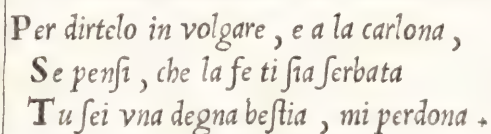 Per dirtelo in volgare , e a la carlona ,
Se penſi , che la fe ti ſia ſerbata
Tu ſei vna degna beſtia , mi perdona .